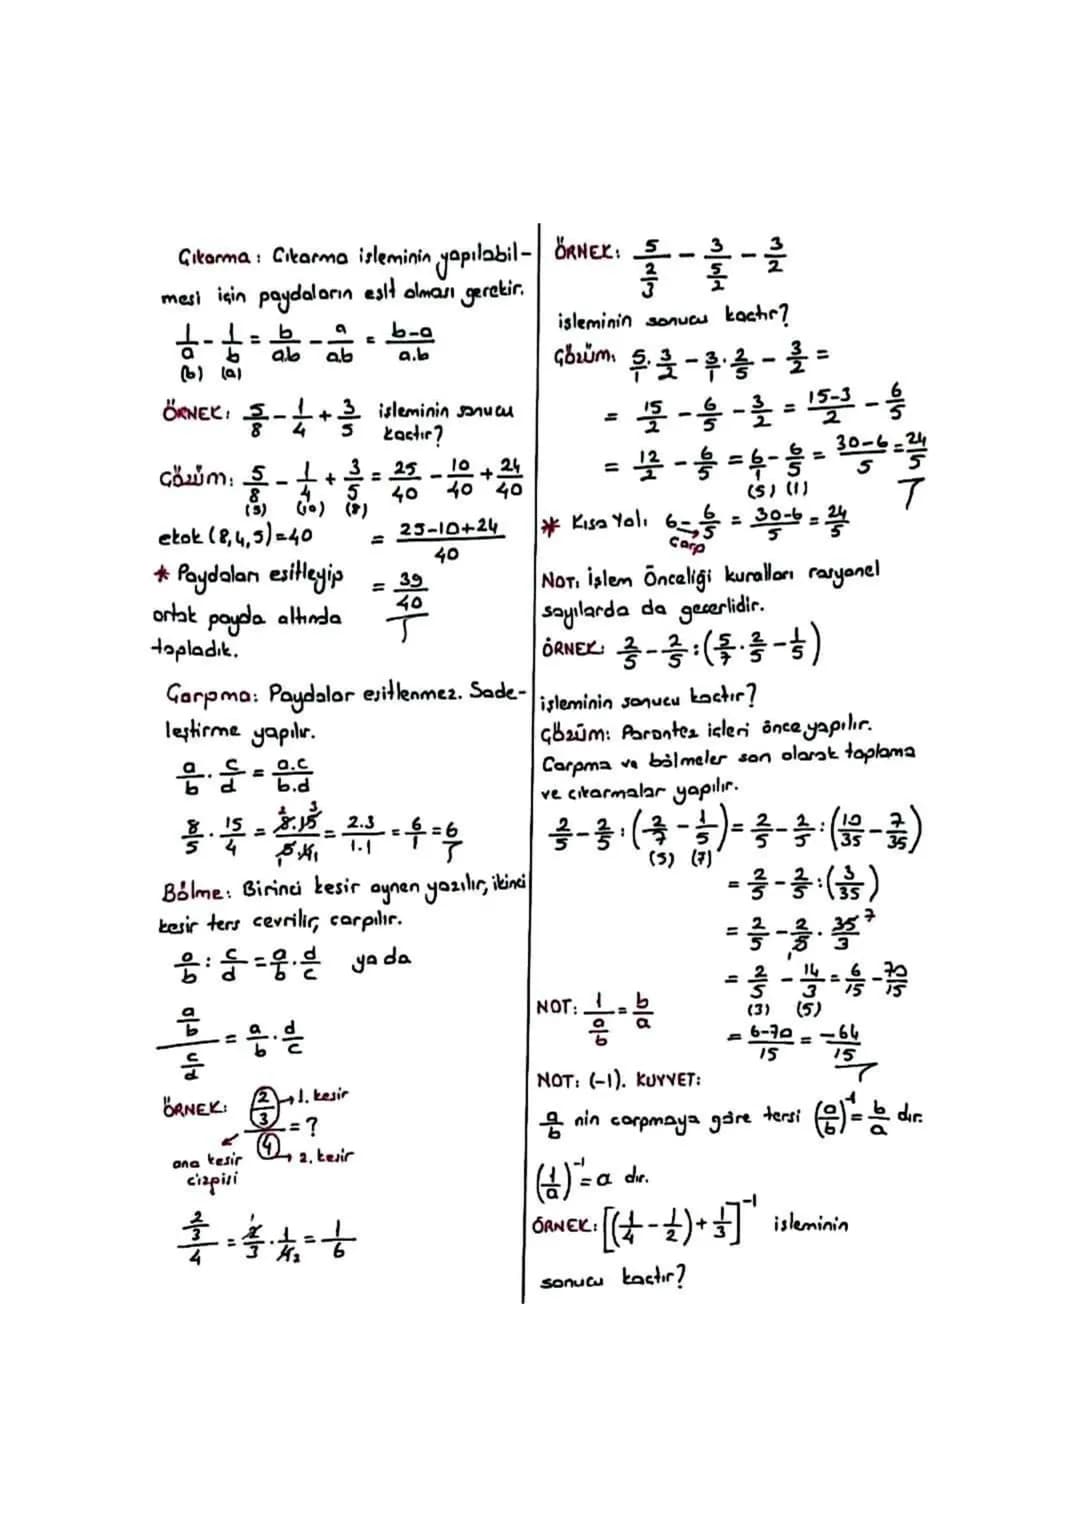 Çıkarma: Çıkarma işleminin yapılabil-
mesi için paydaların eşit olması gerekir.
1/a - 1/b = b/a.b - a/a.b = b-a/a.b
(b) (a)
ÖRNEK: 5/8 - 1/4 + 3/5 işleminin sonucu
kaçtır?
Çözüm: 5/8 - 1/4 + 3/5 = 25/40 - 10/40 + 24/40
(5) (10) (8)
ekok (8,4,5)=40
= 25-10+24/40
* Paydaları eşitleyip
= 39/40
ortak payda altında
topladık.
Çarpma: Paydalar eşitlenmez. Sade-
leştirme yapılır.
a/b . c/d = a.c/b.d
8/5 . 15/4 = 8.15/5.4 = 2.3/1.1 = 6/1 = 6
Bölme: Birinci kesir aynen yazılır, ikinci
kesir ters çevrilir, çarpılır.
a/b : c/d = a/b . d/c ya da
(a/b)/(c/d) = a/b . d/c
ÖRNEK: (2/3)/4 = ?
→ 1. kesir
ana kesir
çizgisi
→ 2. kesir
(2/3)/4 = 2/3 . 1/4 = 1/6
ÖRNEK: 5/(2/3) - 3/(5/2) - 3/2
işleminin sonucu kaçtır?
Çözüm: 5/1 . 3/2 - 3/1 . 2/5 - 3/2 =
= 15/2 - 6/5 - 3/2 = 15-3/2 - 6/5
= 12/2 - 6/5 = 6/1 - 6/5 = 30-6/5 = 24/5
(5) (1)
* Kısa Yol: 6 - 6/5 = 30-6/5 = 24/5
Çarp
NOT: İşlem Önceliği kuralları rasyonel
sayılarda da geçerlidir.
ÖRNEK: 2/5 - 2/5 : (5/7 . 2/5 - 1/5)
işleminin sonucu kaçtır?
Çözüm: Parantez içleri önce yapılır.
Çarpma ve bölmeler son olarak toplama
ve çıkarmalar yapılır.
2/5 - 2/5 : (2/7 - 1/5) = 2/5 - 2/5 : (10/35 - 7/35)
(5) (7)
= 2/5 - 2/5 : (3/35)
= 2/5 - 2/5 . 35/3 7
= 2/5 - 14/3 = 6/15 - 70/15
(3) (5)
= 6-70/15 = -64/15
NOT: 1/(a/b) = b/a
NOT: (-1). KUVVET:
a/b nin çarpmaya göre tersi (a/b)⁻¹ = b/a dır.
(1/a)⁻¹ = a dır.
ÖRNEK: [(1/4 - 1/2) + 1/3]⁻¹ işleminin
sonucu kaçtır?